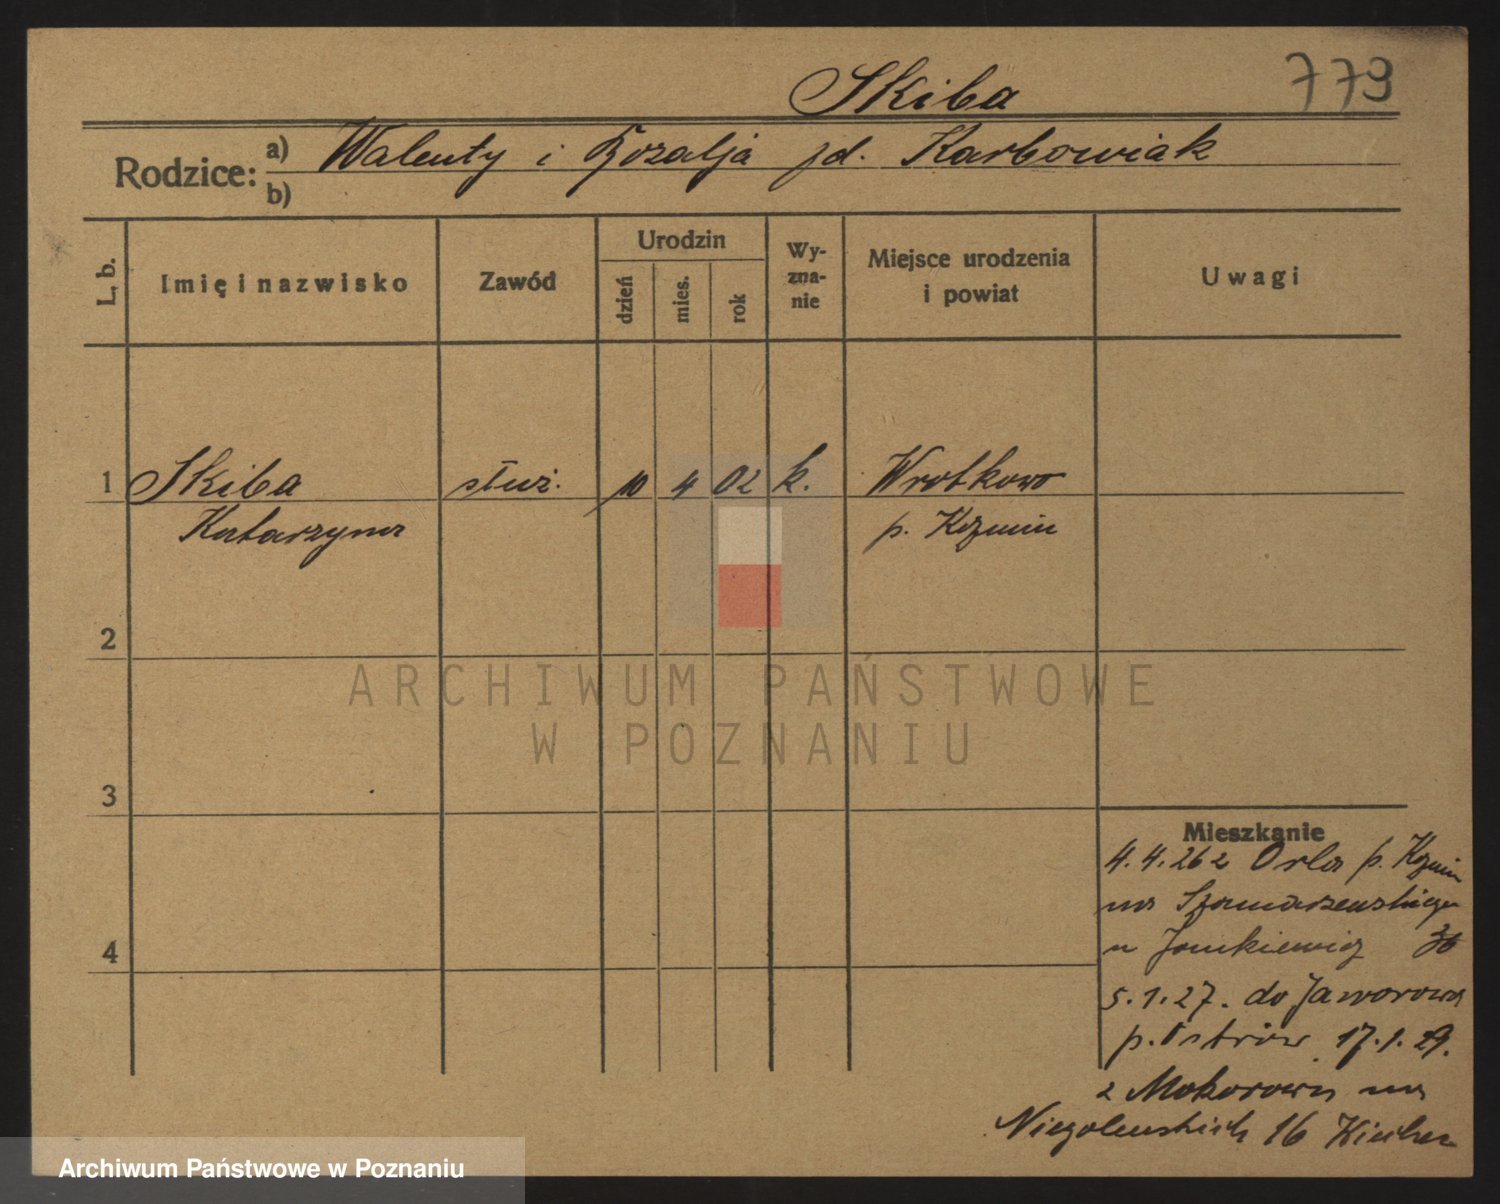 Skiba 779
Rodzice: a) Walenty i Rozalja zd. Karbowiak
b)
L. b.
Imię i nazwisko
Zawód
Urodzin
dzień
mies.
rok
Wy-
zna-
nie
Miejsce urodzenia
i powiat
Uwagi
1 Skiba służ. 10 4 02 k. Wrotkowo
Katarzyna p. Kozmin
2
3
4
ARCHIWUM PAŃSTWOWE
W POZNANIU
Mieszkanie
4.4.26 z Orla p. Kozmin
na Szamarzewskiego
u Jankiewicz 36
5.1.27. do Jaworowa
p. Ostrów 17.1.29.
z Mokorowa na
Niegolewskich 16
Archiwum Państwowe w Poznaniu